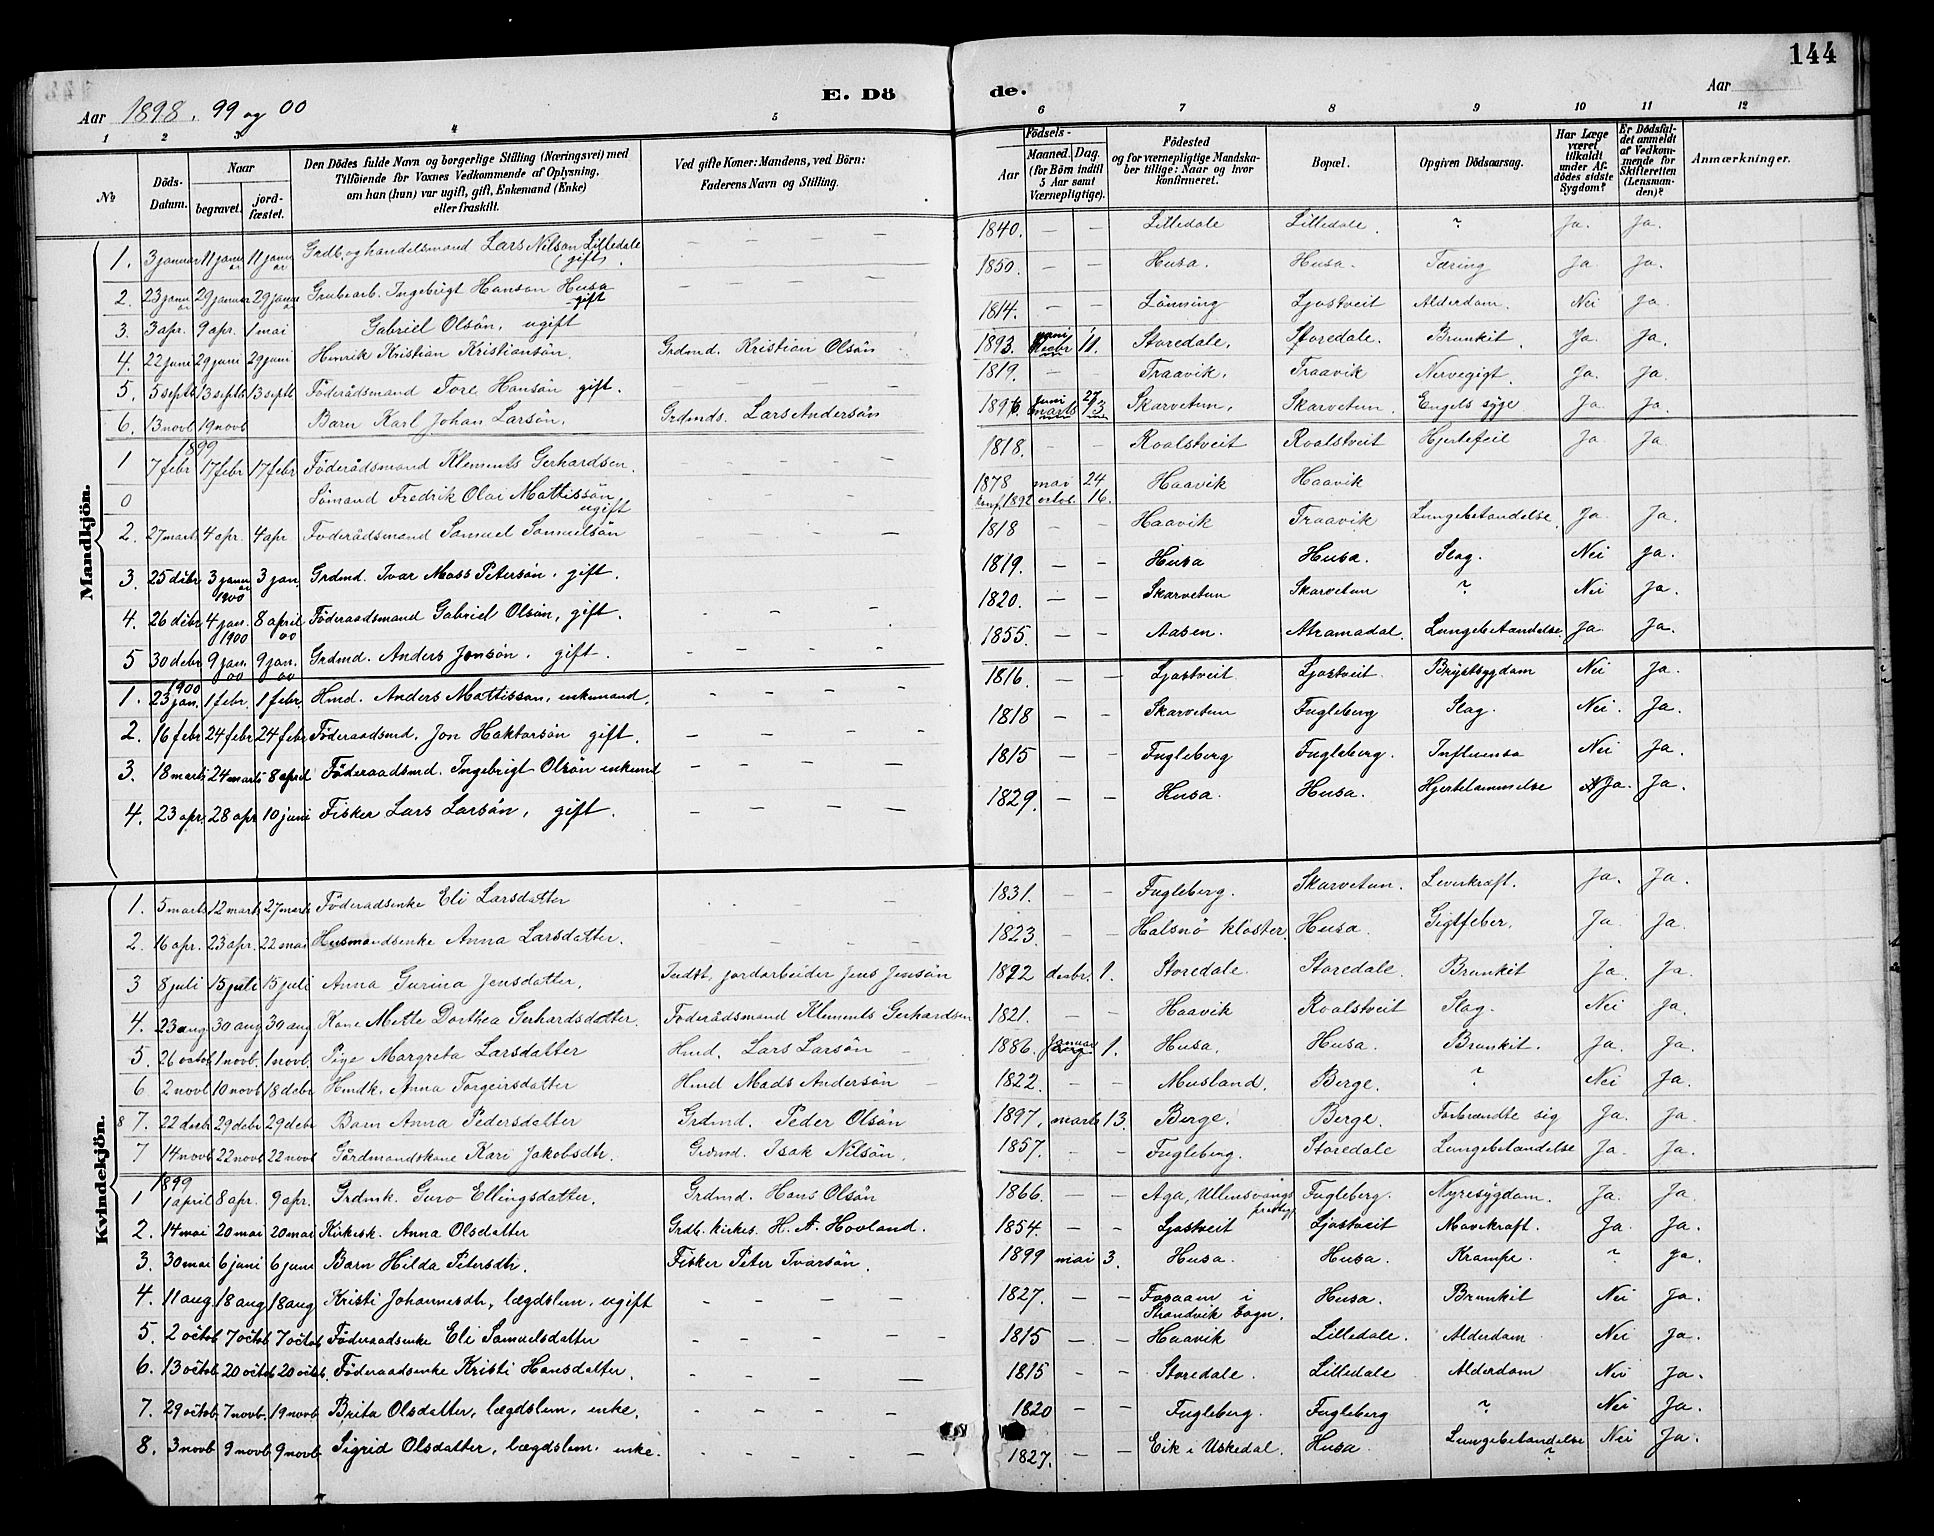 144
Aar 1898. 99 og 00
E. Dö
de.
Aar
1 2 3 4 5 6 7 8 9 10 11 12
No
Döds-Datum.
Naar
begravet.
jordfæstet.
Den Dödes fulde Navn og borgerlige Stilling (Næringsvei) med
Tilföiende for Voxnes Vedkommende af Oplysning,
om han (hun) var ugift, gift, Enkemand (Enke)
eller fraskilt.
Ved gifte Koner: Mandens, ved Börn:
Faderens Navn og Stilling.
Födsels-
Aar
Maaned. Dag.
(for Börn indtil
5 Aar samt
Værnepligtige).
Födested
og for værnepligtige Mandskaber tillige: Naar og hvor
konfirmeret.
Bopæl.
Opgiven Dödsaarsag.
Har Læge
været
tilkaldt
under Afdödes sidste
Sygdom?
Er Dödsfaldet anmeldt
af Vedkommende for
Skifteretten
(Lensmanden)?
Anmærkninger.
Mandkjön.
1. 3 januar 11 janu ar 11 janu ar Grdb. og handelsmand Lars Nilson Lilledale (gift). — — — — 1840. — — Lilledale Lilledale. ? Ja. Ja.
2. 23 janu ar 29 januar 29 janu ar Grubearb. Ingebrigt Hanson Husa gift — 1850. — — Husa. Husa. Tæring Ja Ja.
3. 3 apr. 9 apr. 1 mai Gabriel Olsön, ugift — — — — 1814. — — Lönning Ljostveit Alderdom. Nei Ja.
4. 22 juni 29 juni 29 juni Henrik Kristian Kristiansön. Grdmd. Kristian Olsön 1893. 11. Storedale. Storedale. Brunkit. Ja. Ja.
5. 5 septb 13 septb 13 septb Föderådsmand Tore Hansön gift. — — — — 1819. — — Traavik. Traavik Nervegigt. Ja. Ja.
6. 13 novb 19 novb Barn Karl Johan Larsön. Grdmds. Lars Andersön juni marts 27 13 Skarvetun. Skarvetun. Engels syge Ja. Ja.
1899
1 7 febr 17 febr 17 febr Föderådsmand Klements Gerhardsen. — — — — 1818. — — Roalstveit Roalstveit Hjertefeil Ja Ja.
0 Sömand Fredrik Olai Mattissön ugift — — — — 1878 mai 24 Haavik Haavik
konf. 1892 octob. 16.
2. 27 mart 4 apr. 4 apr Föderådsmand Samuel Samuelsön — — — — 1818 — — Haavik Traavik Lungebetændelse. Ja. Ja.
3. 25 debr 3 janu ar 1900 3 jan. Grdmd. Ivar Moss Petersön. gift. — — — — 1819. — — Husa Husa. Slag. Nei Ja.
4. 26 debr 4 jan. 1900 8 april 00 Föderaadsmand Gabriel Olsön, gift. — — — — 1820. — — Skarvetun Skarvetun ? Nei Ja.
5 30 debr 9 jan. 00 9 jan. 00 Grdmd. Anders Jonsön. gift. — — — — 1855. — — Aasen. Atramadal. Lungebetændelse Ja. Ja.
1900
1. 23 jan. 1 febr. 1 febr. Hmd. Anders Mattisson, enkemand. — — — — 1816. — — Ljostveit Ljostveit Brystsygdom Nei Ja.
2. 16 febr 24 febr 24 febr Föderaadsmd. Jon Haktorsön gift. — — — — 1818 — — Skarvetun Fugleberg Slag. Nei. Ja.
3. 18 marts 24 marts 8 april Föderaadsmd. Ingebrigt Olsön enkemd — — — — 1815 — — Fugleberg Fugleberg. Influensa Nei Ja.
4. 23 apr. 28 apr 10 juni Fisker Lars Larsön, gift. — — — — 1829. — — Husa. Husa. Hjertelammelse Ja. Ja.
Kvindekjön.
1. 5 marts 12 marts 27 marts Föderadsenke Eli Larsdatter — — — 1831. — — Fugleberg. Skarvetun. Leverkraft. Ja. Ja.
2. 16 apr. 23 apr. 22 mai Husmandsenke Anna Larsdatter. — — — — 1823. — — Halsnö kloster. Husa. Gigtfeber. Ja. Ja.
3 8 juli 15 juli 15 juli Anna Gurina Jensdatter. Indst. jordarbeider Jens Jensön 1892 desbr. 1. Storedale. Storedale. Brunkit Ja. Ja.
4. 23 aug 30 aug 30 aug Kone Mette Dorthea Gerhardsdatter. Föderådsmand Klements Gerhardsen 1821. — — Haavik Roalstveit Slag. Nei Ja.
5. 26 octob 1 novb. 1 novb. Pige Margreta Larsdatter Hmd. Lars Larsön — 1886. Januar 1. Husa. Husa. Brunkit. Ja. Ja.
6 2 novb 10 novb 18 debr Hmdk. Anna Torgeirsdatter Hmd Mads Andersön — 1822. — — Musland. Berge. ? Nei Ja.
8 7. 22 desbr 29 debr 29 debr Barn Anna Pedersdatter Grdmd. Peder Olsön 1897. marts 13. Berge. Berge. Forbrændte sig Ja. Ja.
7 14 novb 22 novb 22 novb Gårdmandskone Kari Jakobsdtr. Grdmd. Isak Nilsön. 1857. — — Fugleberg. Storedale Lungebetændelse Ja. Ja.
1899
1 1 april 8 apr. 9 apr. Grdmk. Guro Ellingsdatter. Grdmd. Hans Olsön 1866. — — Aga, Ullensvangs prestegj. Fugleberg. Nyresygdom. Ja. Ja.
2. 14 mai 20 mai 20 mai Kirkesk. Anna Olsdatter Grdb. kirkes. H. A. Hovland. 1854. — — Ljostveit Ljostveit Mavekraft. Ja. Ja.
3. 30 mai 6 juni 6 juni Barn Hilda Petersdtr. Fisker Peter Ivarsön. 1899 mai 3. Husa. Husa. Krampe. ? Ja.
4. 11 aug 18 aug 18 aug Kristi Johannesdtr, lægdslem, ugift — — — — 1827. — — i Strandvik sogn. Husa. Brunkit Nei Ja.
5. 2 octob 7 octob 7 octob Föderaadsenke Eli Samuelsdatter — — — — 1815 — — Haavik Lilledale. Alderdom Nei Ja.
6. 13 octob 20 octob 20 octob. Föderaadsenke Kristi Hansdatter. — — — — 1815 — — Storedale. Lilledale Alderdom Nei Ja.
7. 29 octob 7 novb. 19 novb Brita Olsdatter, lægdslem, enke. — — — — 1820 — — Fugleberg. Fugleberg ? Nei Ja.
8. 3 novb 9 novb 9 novb Sigrid Olsdatter, lægdslem. enke. — — — — 1827. — — Eik i Uskedal. Husa. Lungebetændelse ? Nei Ja.